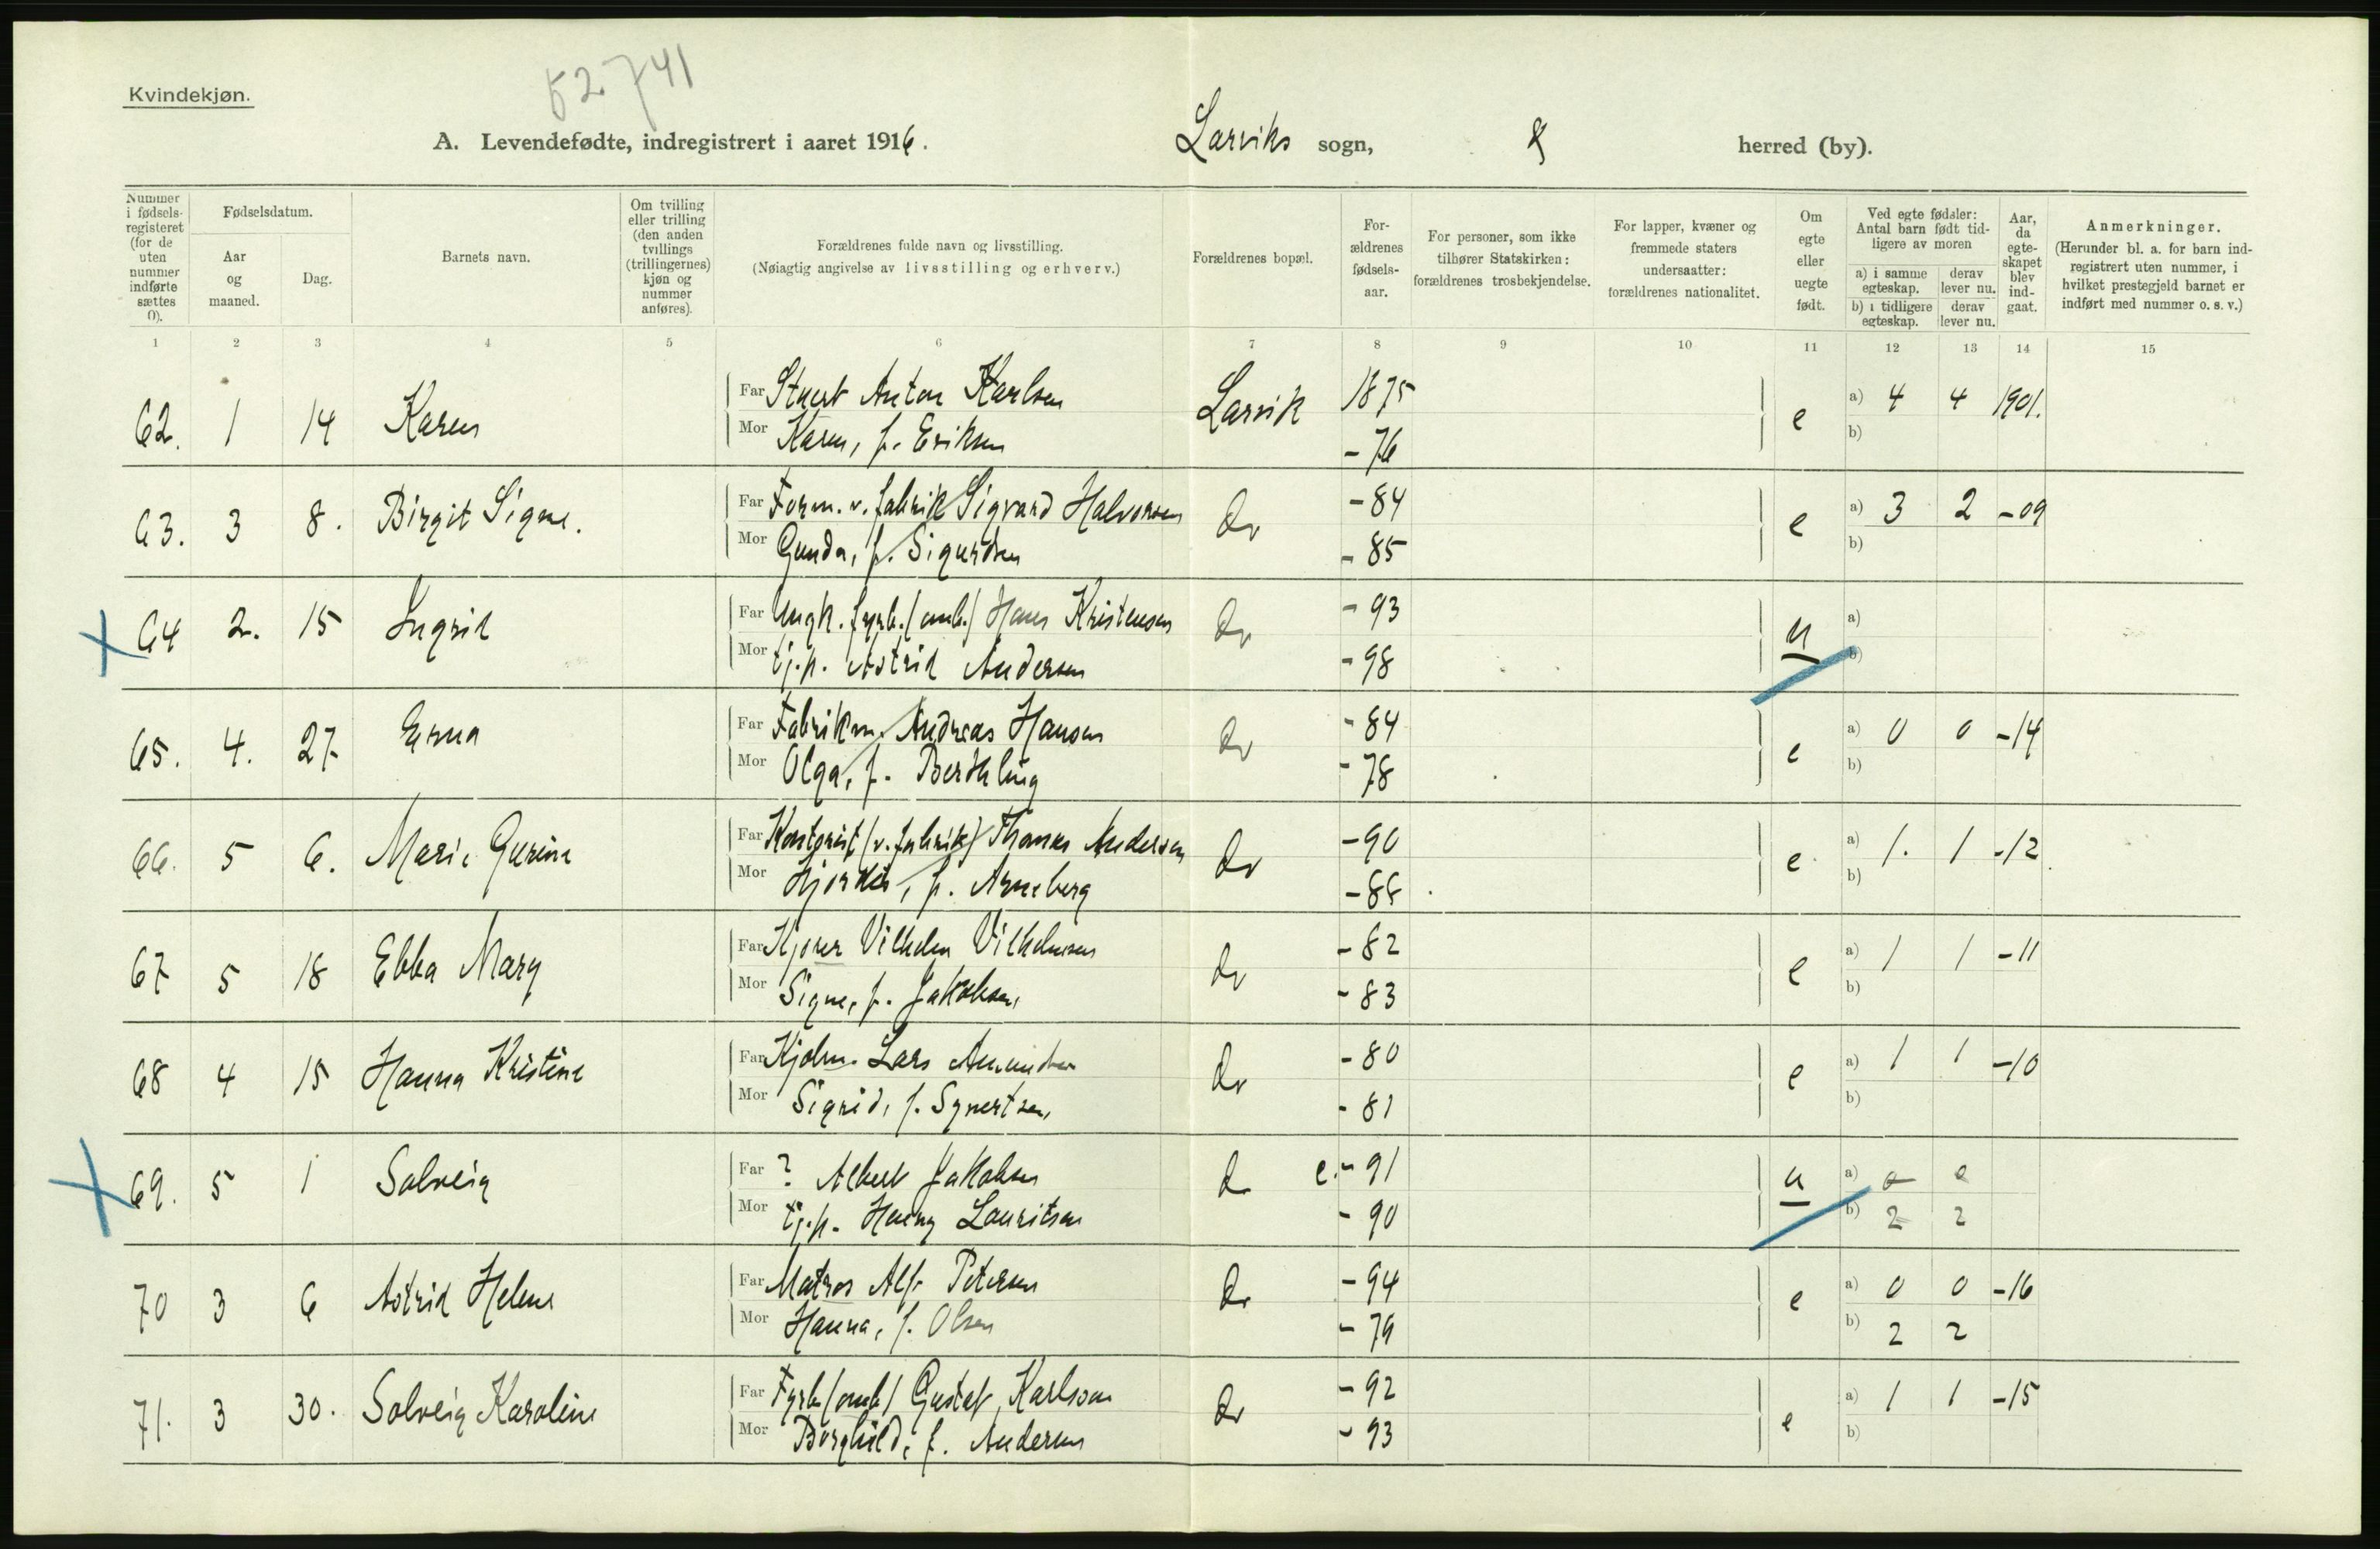 52741
Kvindekjøn.
A. Levendefødte, indregistrert i aaret 1916. Larviks sogn, herred (by).
Nummer i fødselsregisteret (for de uten nummer indførte sættes 0).
Fødselsdatum.
Aar og maaned.
Dag.
Barnets navn.
Om tvilling eller trilling (den anden tvillings (trillingernes) kjøn og nummer anføres).
Forældrenes fulde navn og livsstilling.
(Nøiagtig angivelse av livsstilling og erhverv.)
Forældrenes bopæl.
Forældrenes fødselsaar.
For personer, som ikke tilhører Statskirken: forældrenes trosbekjendelse.
For lapper, kvæner og fremmede staters undersaatter: forældrenes nationalitet.
Om egte eller uegte født.
Ved egte fødsler: Antal barn født tidligere av moren
a) i samme egteskap. derav lever nu.
b) i tidligere egteskap. derav lever nu.
Aar, da egteskapet blev indgaat.
Anmerkninger.
(Herunder bl. a. for barn indregistrert uten nummer, i hvilket prestegjeld barnet er indført med nummer o. s. v.)
1 2 3 4 5 6 7 8 9 10 11 12 13 14 15
62. 1 14 Karen Far Anton Karlsen Larvik 1875 e a) 4 4 1901.
Mor Karen, f. Eriksen - 76 b)
63. 3 8. Birgit Signe. Far Form. v. fabrik Sigvard Halvorsen Do - 84 e a) 3 2 - 09
Mor Gunda, f. Sigurdsen - 85 b)
64 2. 15 Ingrid Far Ungk. fyrb. (omb.) Hans Kristensen Do - 93 u a)
Mor tj.p. Astrid Andersen - 98 b)
65. 4. 27 Erna Far Fabrikm. Andreas Hansen Do - 84 e a) 0 0 - 14
Mor Olga, f. Berthling - 78 b)
66. 5 6. Marie Gurine Far Kontorist (v. fabrik) Thomas Andersen Do - 90 e a) 1. 1 - 12
Mor Hjørdis, f. Arneberg - 88 b)
67 5 18 Ebba Mary Far Kjører Vilhelm Vilhelmsen Do - 82 e a) 1 1 - 11
Mor Signe, f. Jakobsen - 83 b)
68 4 15 Hanna Kristine Far Lars Amundsen Do - 80 e a) 1 1 - 10
Mor Sigrid, f. Syvertsen, - 81 b)
69. 5 1 Solveig Far ? Albert Jakobsen Do c. - 91 u a) 0 0
Mor tj.p. Hanny Lauritsen - 90 b) 2 2
70 3 6 Astrid Helene Far Matros Alf Petersen Do - 94 e a) 0 0 - 16
Mor Hanna, f. Olsen - 79 b) 2 2
71. 3 30. Solveig Karoline Far Fyrb. (omb.) Gustaf Karlsson Do - 92 e a) 1 1 - 15
Mor Borghild, f. Andersen - 93 b)